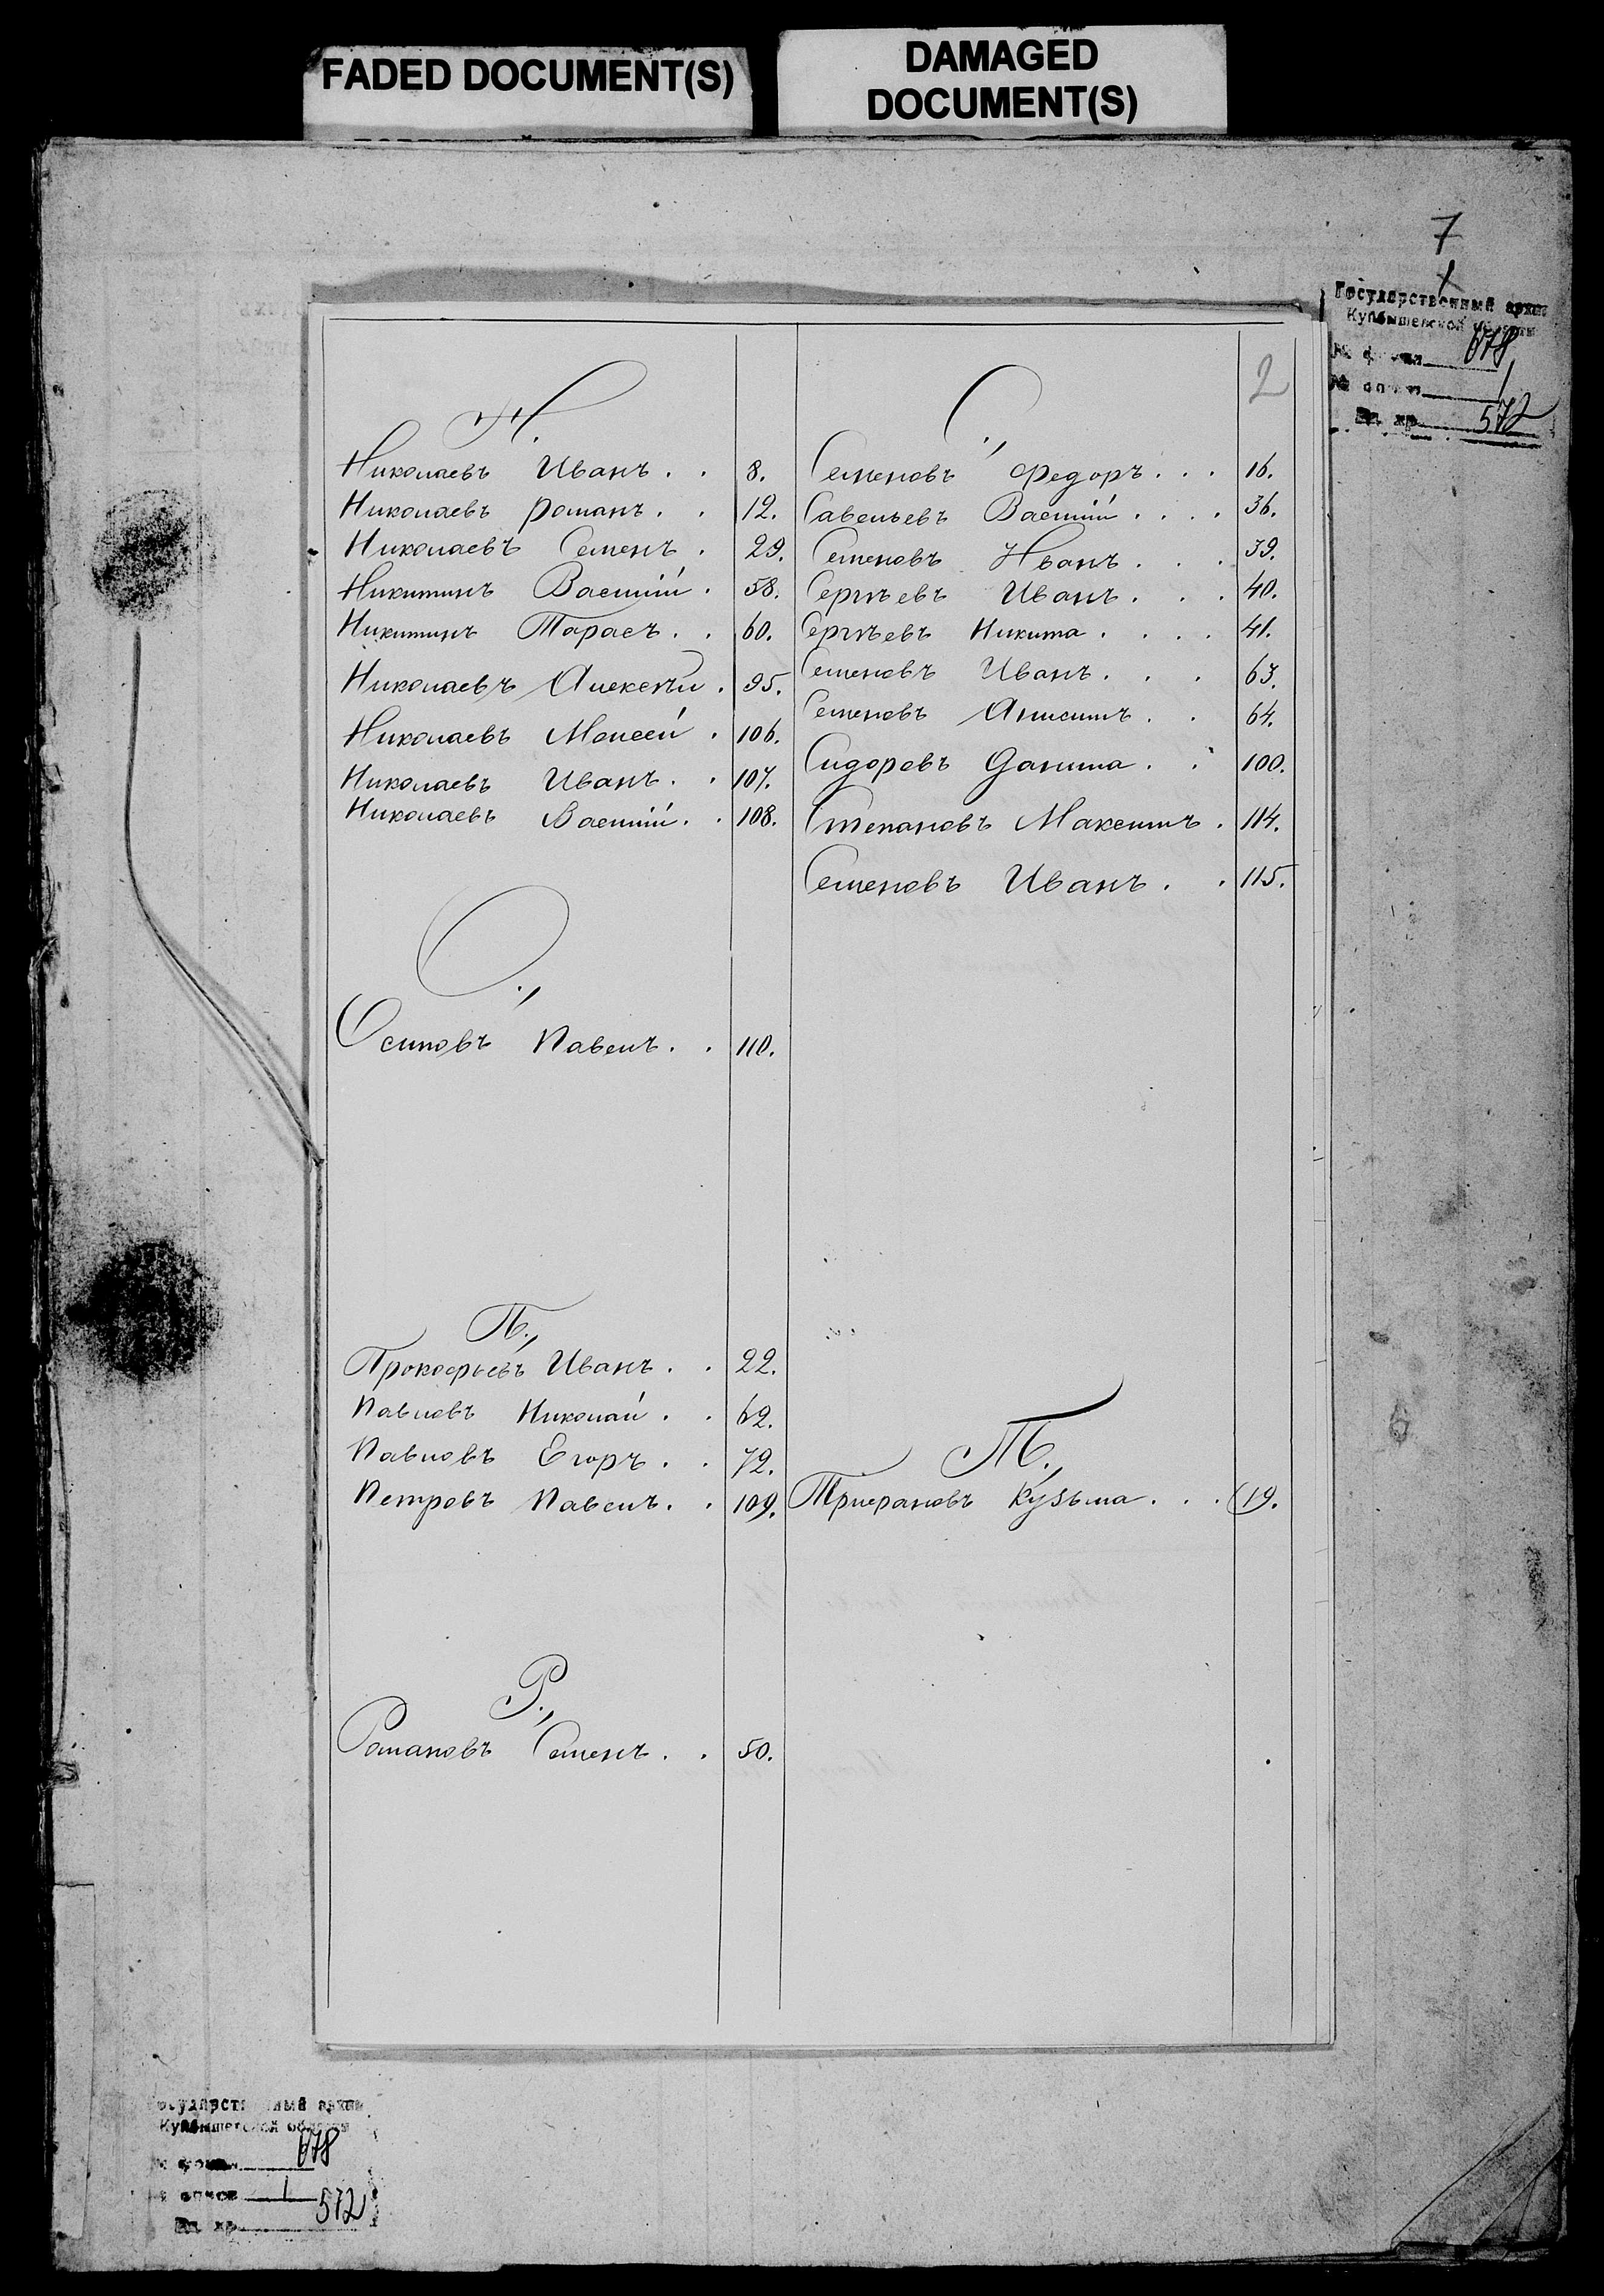 FADED DOCUMENT(S)
DAMAGED
DOCUMENT(S)
7
1
Государственный архив
Куйбышевской области
№ фонда 678
№ описи 1
Ед. хр. 572
2
Н.
Николаевъ Иванъ . . 8.
Николаевъ Романъ . . 12.
Николаевъ Семенъ . 29.
Никитинъ Василій . 58.
Никитинъ Тарасъ . . 60.
Николаевъ Алексѣй . 95.
Николаевъ Моисей . 106.
Николаевъ Иванъ . . 107.
Николаевъ Василій . . 108.
О.,
Осиповъ Павелъ . . 110.
П.,
Прокофьевъ Иванъ . . 22.
Павловъ Николай . . 62.
Павловъ Егоръ . . 72.
Петровъ Павелъ . . 109.
Р.,
Романовъ Семенъ . . 50.
С.,
Семеновъ Федоръ . . . 16.
Савельевъ Василій . . . . 36.
Семеновъ Иванъ . . . 39.
Сергѣевъ Иванъ . . . 40.
Сергѣевъ Никита . . . . 41.
Семеновъ Иванъ . . . 63.
Семеновъ Анисимъ . . 64.
Сидоровъ Данила . . 100.
Степановъ Максимъ . 114.
Семеновъ Иванъ . . 115.
Т.,
Трифановъ Кузьма . . . 19.
Государственный архив
Куйбышевской области
№ фонда 678
№ описи 1
Ед. хр. 572